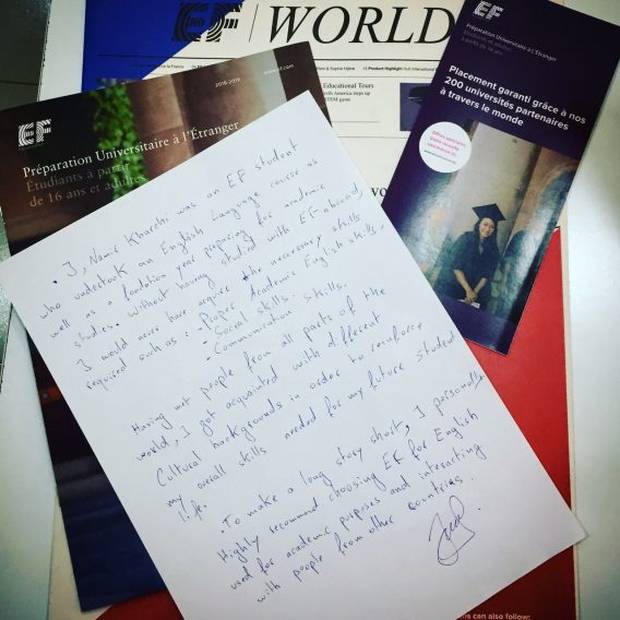 EF
WORLD
EF
2018-2019
Préparation Universitaire à l'Étranger
Étudiants à partir
de 16 ans et adultes
Educational Tours
Product Highlight
EF
Préparation Universitaire à L'Étranger
Placement garanti grâce à nos
200 universités partenaires
à travers le monde
. I, Namir Kharchi was an EF student
who undertook an English Language course as
well as a fondation year preparing for academic
studies. without having studied with EF-abroad,
I would never have acquire the necessary skills
required such as: - Proper Academic English skills.
- Social skills.
- Communication skills.
Having met people from all parts of the
world, I got acquainted with different
Cultural backgrounds in order to reinforce
my overall skills needed for my future student
life.
. To make a long story short, I personally
Highly recommend choosing EF for English
used for academic purposes and interacting
with people from other countries.
can also follow: